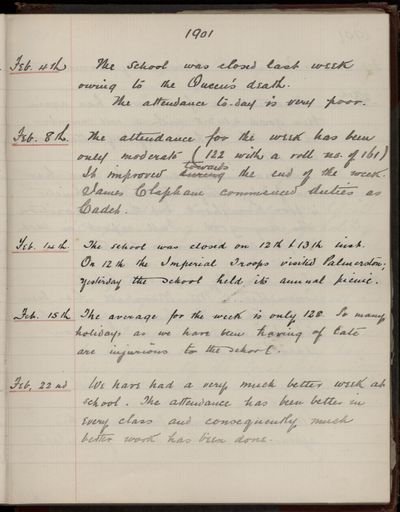 1901
Feb. 4th The School was closed last week
owing to the Queen's death.
The attendance to-day is very poor.
Feb. 8th. The attendance for the week has been
only moderate (122 with a roll no. of 161)
It improved during towards the end of the week.
James Clapham commenced duties as
Cadet.
Feb. 14th The school was closed on 12th & 13th inst.
On 12th the Imperial Troops visited Palmerston;
yesterday the school held its annual picnic.
Feb. 15th The average for the week is only 120. So many
holidays as we have been having of late
are injurious to the school.
Feb. 22nd We have had a very much better week at
school. The attendance has been better in
every class and consequently much
better work has been done.